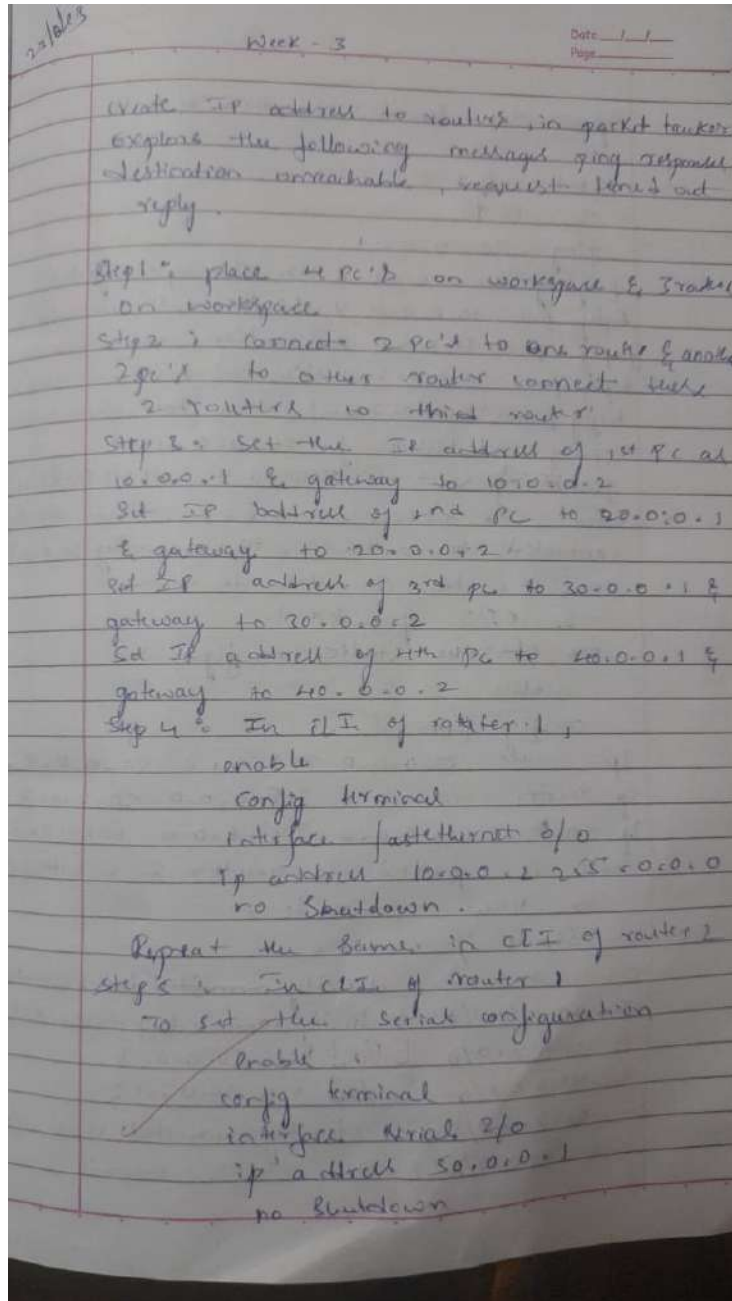 Week - 3
Date
Page
create IP address to routers, in packet tracker
explore the following messages ping responses
destination unreachable, request timed out
reply.
Step1: place 4 PC's on workspace & 3 router
on workspace
Step2: connect 2 PC's to one router & anoth
2 pc's to other router connect these
2 routers to third router
Step 3: Set the IP address of 1st PC as
10.0.0.1 & gateway to 10.0.0.2
Set IP address of 2nd PC to 20.0.0.1
& gateway to 20.0.0.2
Set IP address of 3rd pc to 30.0.0.1 &
gateway to 30.0.0.2
Set IP address of 4th PC to 40.0.0.1 &
gateway to 40.0.0.2
Step 4: In CLI of router 1,
enable
config terminal
interface fastethernet 0/0
Ip address 10.0.0.2 255.0.0.0
no Shutdown.
Repeat the same in CLI of router 2
Step 5: In CLI of router 1
To set the serial configuration
enable
config terminal
interface serial 2/0
ip address 50.0.0.1
no Shutdown